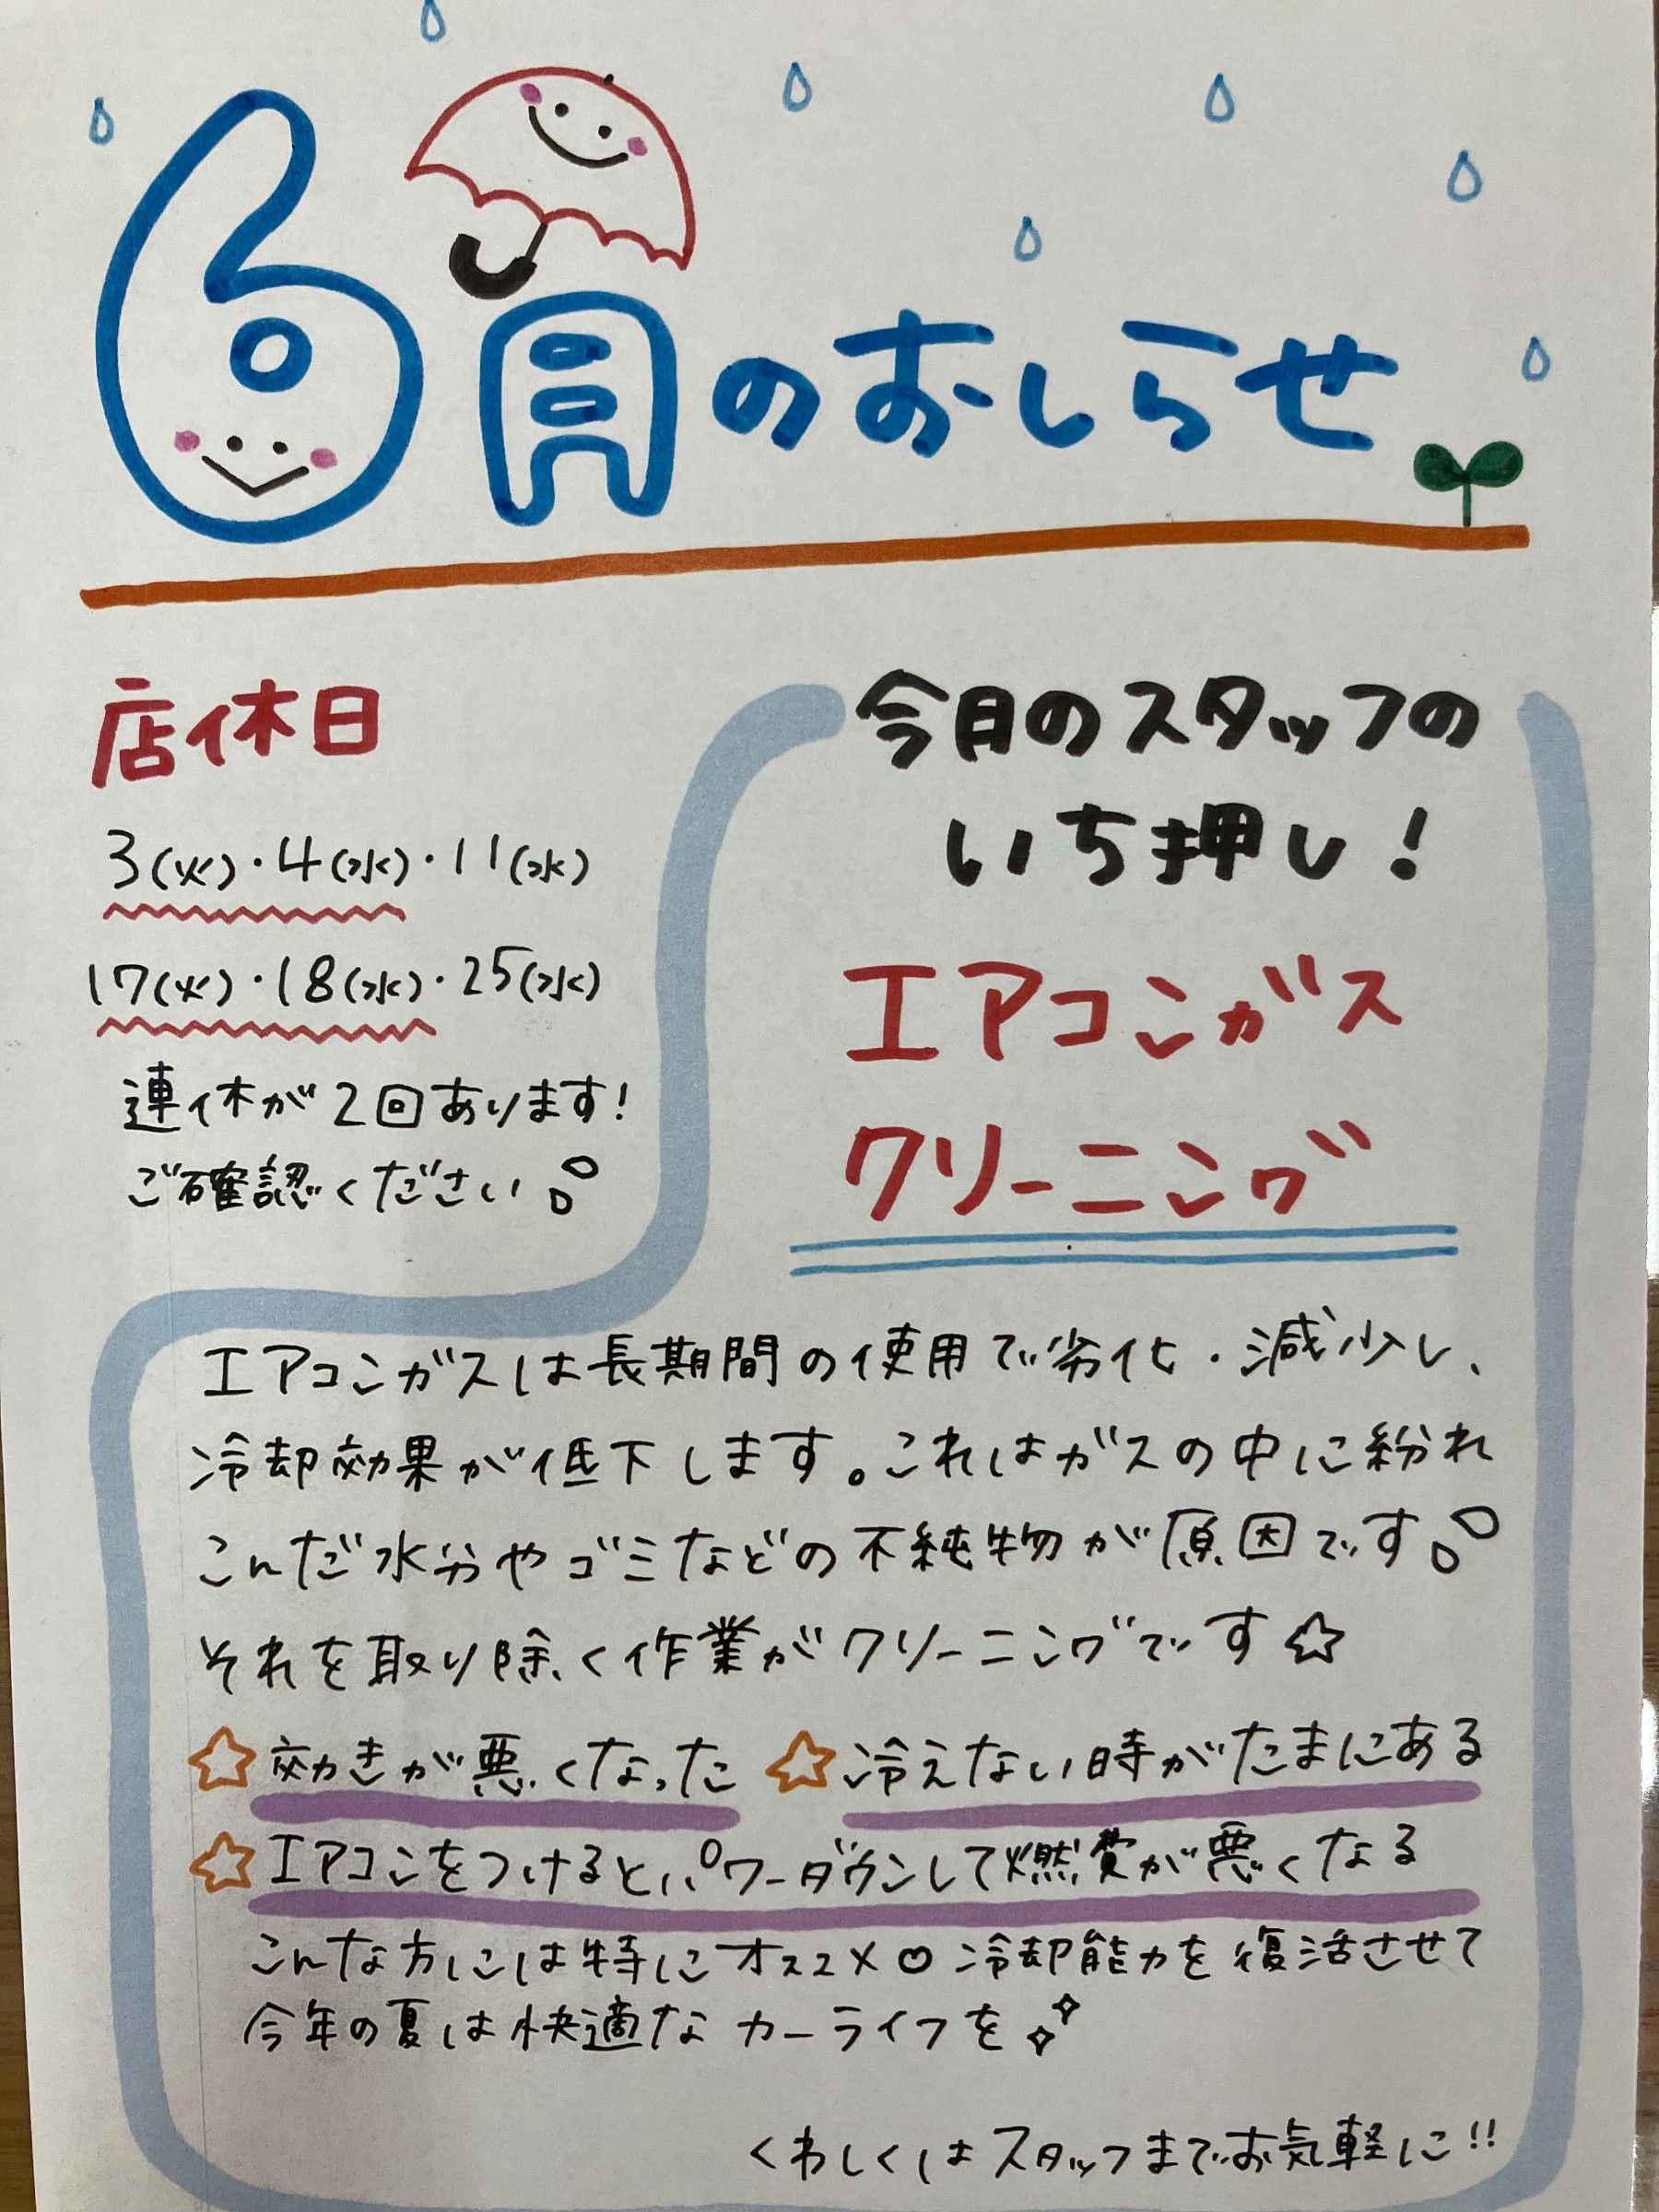 6月のおしらせ
店休日
3(火)・4(水)・11(水)
17(火)・18(水)・25(水)
連休が2回あります!
ご確認ください
今月のスタッフの
いち押し!
エアコンガス
クリーニング
エアコンガスは長期間の使用で劣化・減少し、
冷却効果が低下します。これはガスの中に紛れ
こんだ水分やゴミなどの不純物が原因です
それを取り除く作業がクリーニングです☆
☆効きが悪くなった ☆冷えない時がたまにある
☆エアコンをつけるとパワーダウンして燃費が悪くなる
こんな方には特にオススメ♡冷却能力を復活させて
今年の夏は快適なカーライフを
くわしくはスタッフまでお気軽に!!